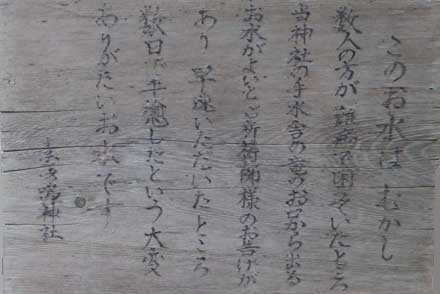 このお水は むかし
数人の方が 難病で困っていたところ
当神社の手水舎の竜のお口から出る
お水がよいとご祈祷師様のお告げが
あり 早速いただいたところ
数日で平癒したという大変
ありがたいお水です
神社